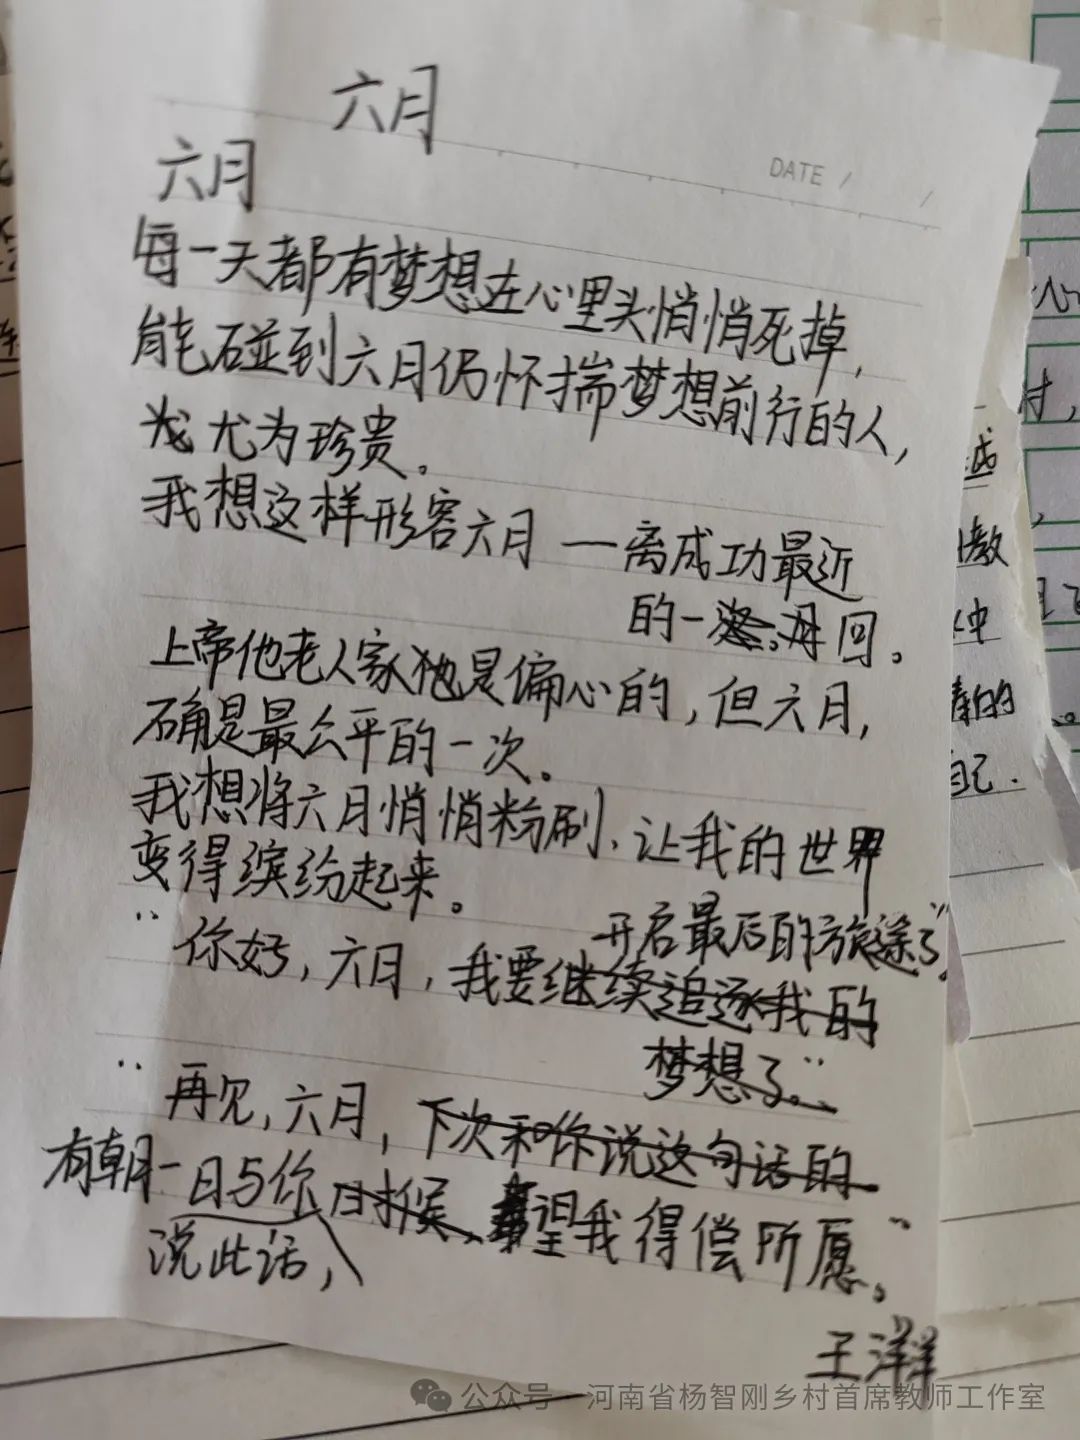 六月
DATE / /
六月
每一天都有梦想在心里头悄悄死掉,
能碰到六月仍怀揣梦想前行的人,
尤为珍贵。
我想这样形容六月 —离成功最近
的一次。 回。
上帝他老人家他是偏心的,但六月,
确是最公平的一次.
我想将六月悄悄粉刷.让我的世界
变得缤纷起来。
开启最后的旅途了"
"你好,六月,我要继续追逐我的
梦想了。"
"再见,六月,下次和你说这句话的
有朝一日与你 时候、望我得偿所愿。"
说此话,
王洋洋
公众号 河南省杨智刚乡村首席教师工作室
教
中
的
自己.